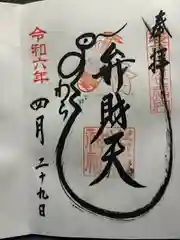 奉拝
弁財天
令和六年
四月
二十九日